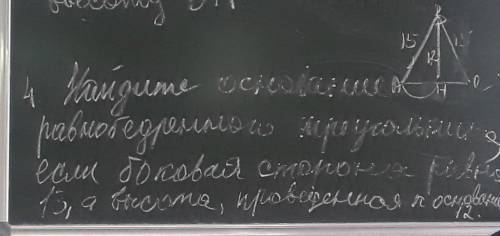 высоту
4. Найдите основание
равнобедренного треугольника
если боковая сторона равна
15, а высота, проведенная к основанию
12.
15
12
15
H